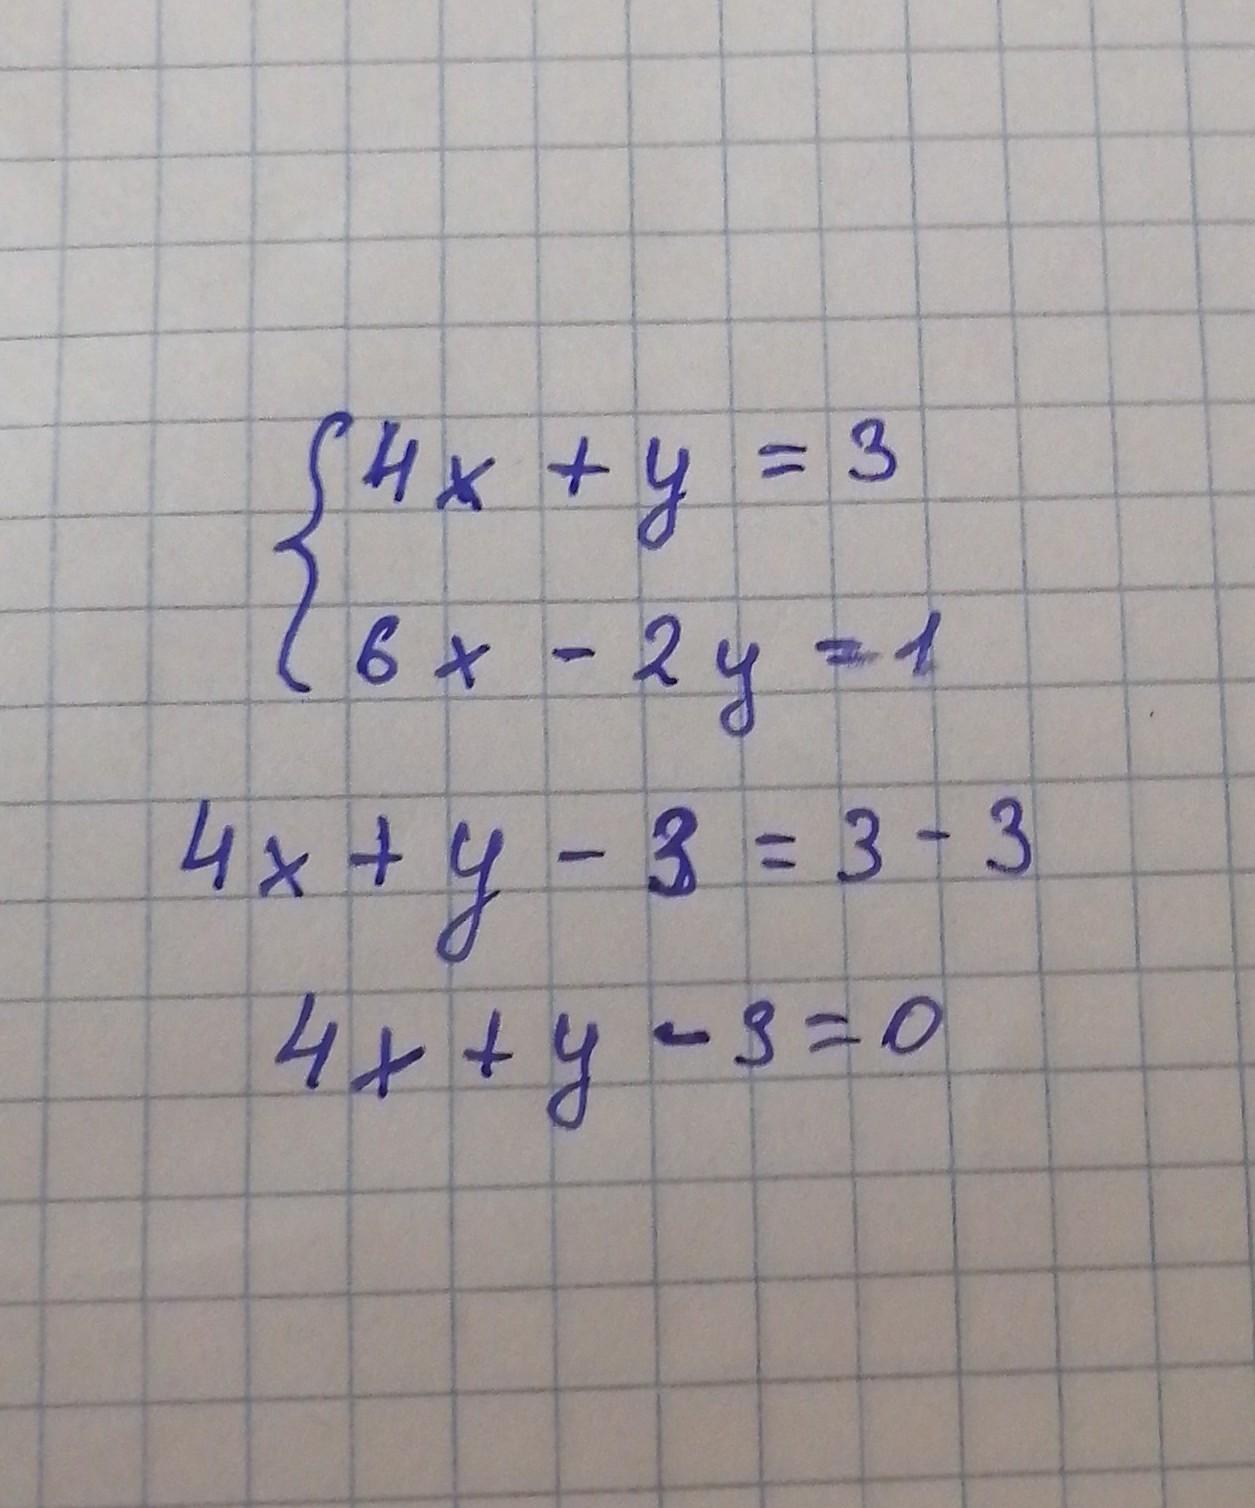 4x + y = 3
6x - 2y = 1
4x + y - 3 = 3 - 3
4x + y - 3 = 0